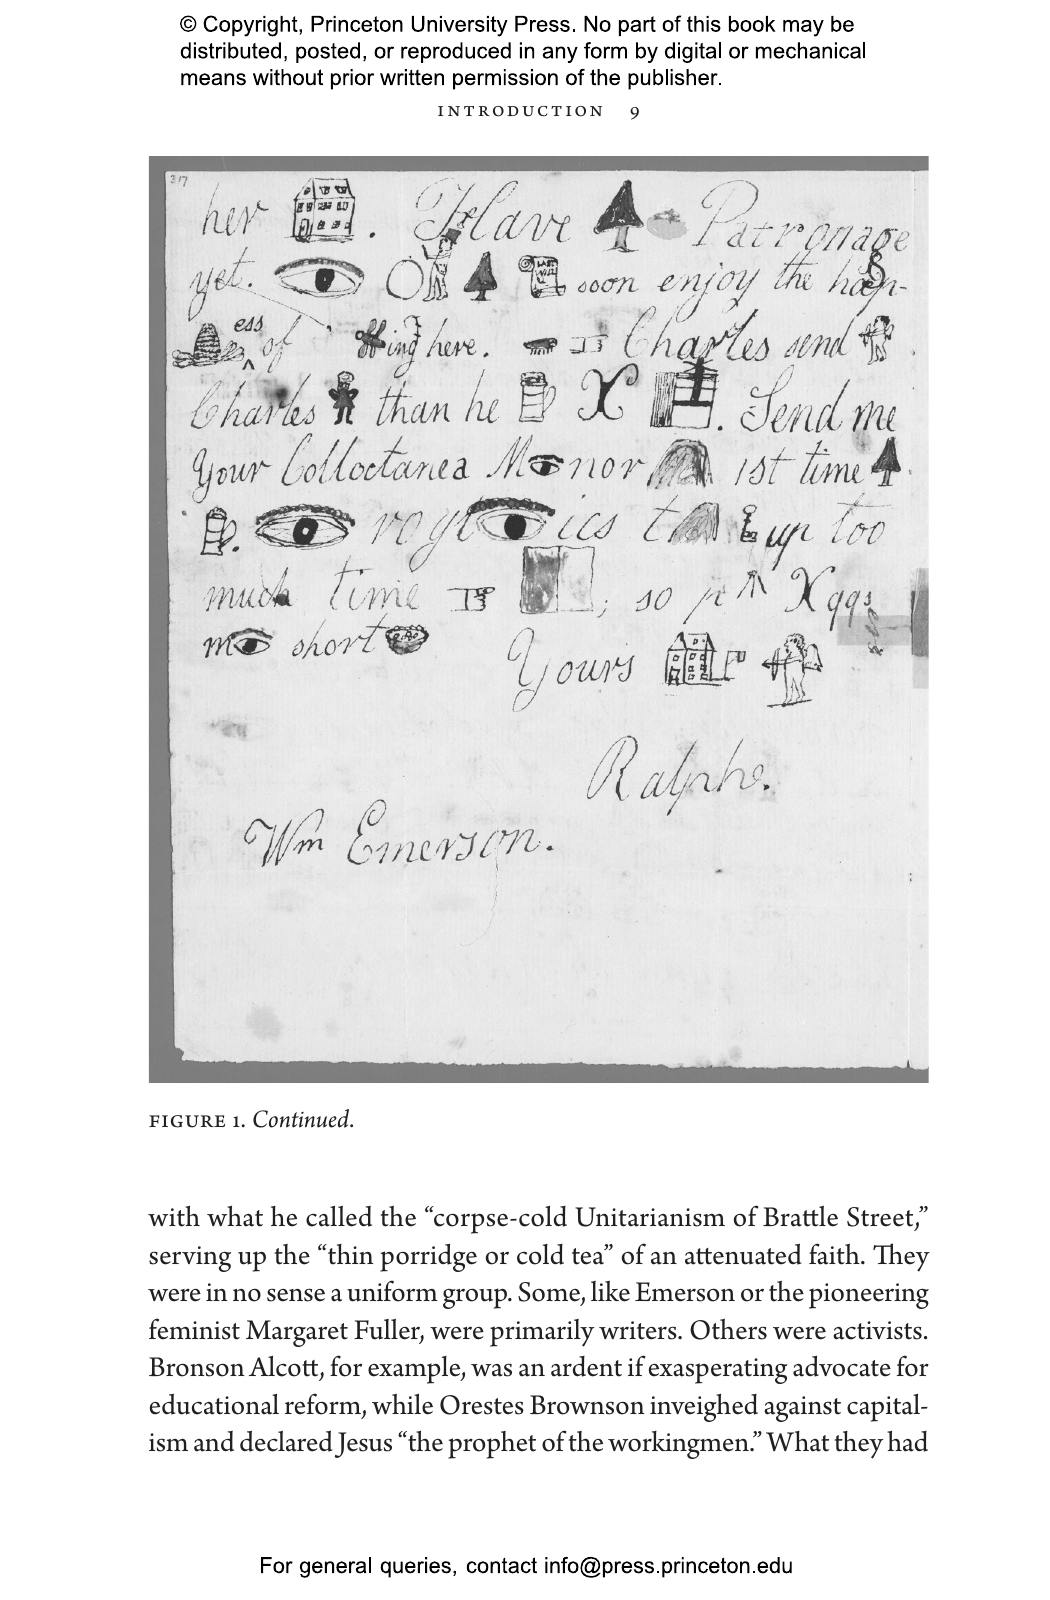 © Copyright, Princeton University Press. No part of this book may be
distributed, posted, or reproduced in any form by digital or mechanical
means without prior written permission of the publisher.
INTRODUCTION 9
317
her . Have Patronage
yet. soon enjoy the hap-
ess
of ing here. Charles send
Charles than he X . Send me
Your Colloctanea M nor 1st time
. ro gl ics t up too
much time ; so p X qqs
m short
Yours
Ralph.
Wm Emerson.
FIGURE 1. Continued.
with what he called the “corpse-cold Unitarianism of Brattle Street,”
serving up the “thin porridge or cold tea” of an attenuated faith. They
were in no sense a uniform group. Some, like Emerson or the pioneering
feminist Margaret Fuller, were primarily writers. Others were activists.
Bronson Alcott, for example, was an ardent if exasperating advocate for
educational reform, while Orestes Brownson inveighed against capital-
ism and declared Jesus “the prophet of the workingmen.” What they had
For general queries, contact info@press.princeton.edu